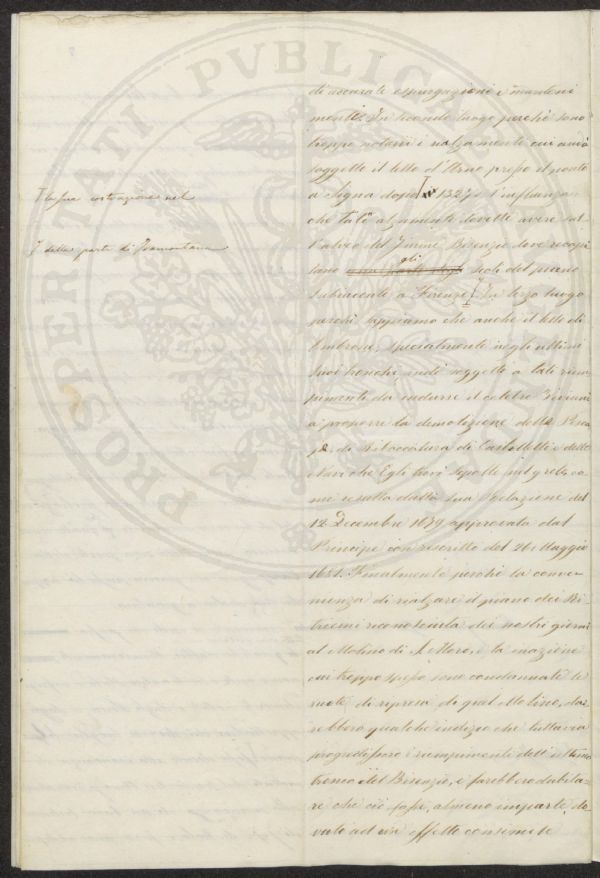 PROSPERITATI PVBLICAE
di accurate espurgazioni e manteni
mento. In secondo luogo perchè sono
troppo notorii i rialzamenti cui andò
soggetto il letto d'Arno presso il ponte
a Signa dopo il 1327 e l'influenza
che tale alzamento dovette avere sul
l'alveo del Fiume Bisenzio dove recapi
tano gli scoli del piano
subiacente a Firenze. In terzo luogo
perchè sappiamo che anche il letto di
Ombrone, specialmente negli ultimi
suoi tronchi, andò soggetto a tali riem
pimenti da indurre il celebre Viviani
a proporre la demolizione delle Pesca
je di Castelletti e delle
Navi che Egli trovò sepolte sul greto, co
me resulta dalla sua Relazione del
12 Decembre 1679 approvata dal
Principe con rescritto del 26 Maggio
1681. Finalmente perchè la conve
nienza di rialzare il piano dei Ri
trecini riconosciuta dei nostri giorni
al Molino di S. Moro, e la inazione
cui troppo spesso sono condannate le
ruote di ripresa di quel Molino, da
rebbero qualche indizio che tuttavia
progredissero i riempimenti dell'ultimo
tronco del Bisenzio, e farebbero dubita
re che ciò fosse, almeno in parte, do
vuto ad un effetto consimile
la sua costruzione nel
della parte di Tramontana